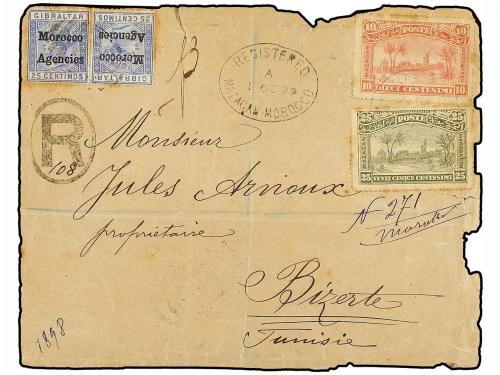 GIBRALTAR
Morocco
Agencies
25 CENTIMOS
GIBRALTAR
Morocco
Agencies
25 CENTIMOS
REGISTERED
A
OC 99
MAZAGAN-MOROCCO
10 POSTE 10
MAZAGAN
MARRAKECH
10 DIECI CENTESIMI 10
25 POSTE 25
MAZAGAN
MARRAKECH
25 VENTI CINQUE CENTESIMI 25
R
108
Monsieur
Jules Arnoux
propriétaire
N 271
Bizerte
Tunisie
1898